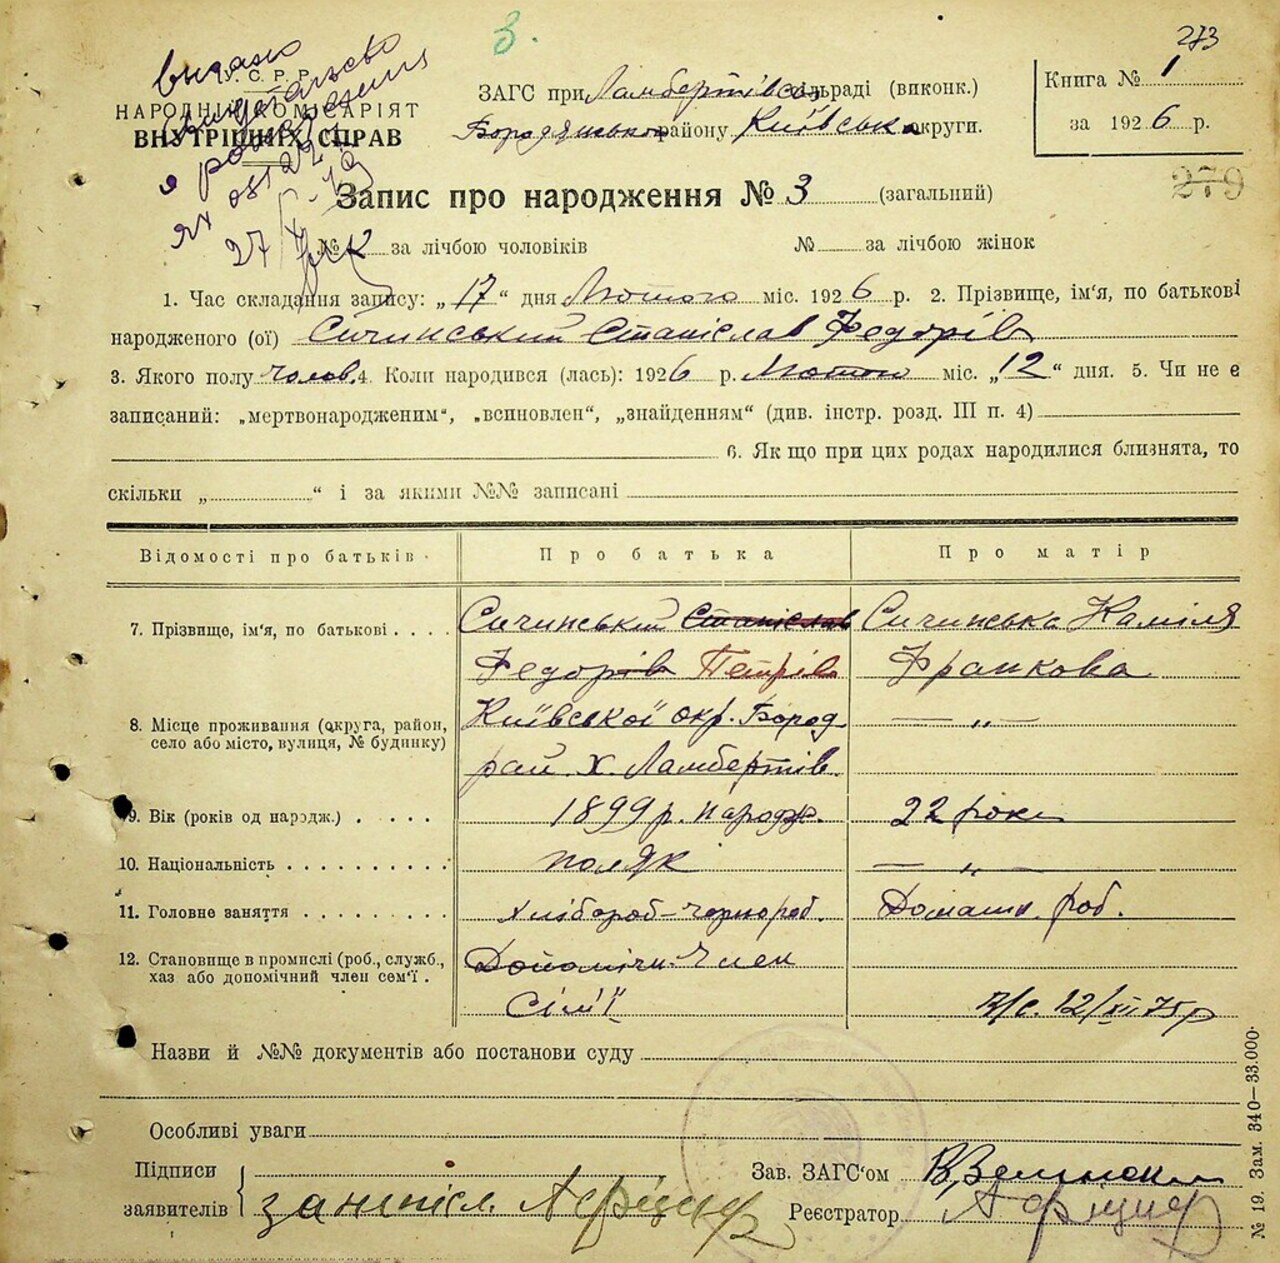 273
3.
У. С. Р. Р.
НАРОДНІЙ КОМІСАРІЯТ
ВНУТРІШНІХ СПРАВ
ЗАГС при Ламбертівск. сільраді (виконк.)
Бородянськом району Київськ округи.
Книга № 1
за 1926 р.
279
Запис про народження № 3 (загальний)
№ 2 за лічбою чоловіків № за лічбою жінок
1. Час складання запису: „17“ дня Лютого міс. 1926 р. 2. Прізвище, ім'я, по батькові
народженого (ої) Сичинський Станіслав Федорів
3. Якого полу чолов. 4. Коли народився (лась): 1926 р. Лютого міс. „12“ дня. 5. Чи не є
записаний: „мертвонародженим“, „всиновлен“, „знайденням“ (див. інстр. розд. III п. 4)
6. Як що при цих родах народилися близнята, то
скільки „ “ і за якими №№ записані
Відомості про батьків Про батька Про матір
7. Прізвище, ім'я, по батькові Сичинський Станіслав Сичинська Каміля
Федорів Петрів Франкова
8. Місце проживання (округа, район, Київської окр. Бород. — „ —
село або місто, вулиця, № будинку) рай. х. Ламбертів.
9. Вік (років од народж.) 1899 р. народж. 22 роки
10. Національність поляк — „ —
11. Головне заняття хлібороб-чорнороб. Домашн. роб.
12. Становище в промислі (роб., служб., Допоміжн. член
хаз або допомічний член сем'ї . Сім'ї п/с. 12/XII 75 р
Назви й №№ документів або постанови суду
Особливі уваги
Підписи
заявителів
Зав. ЗАГС'ом
Реєстратор
№ 19. Зам. 340—33.000